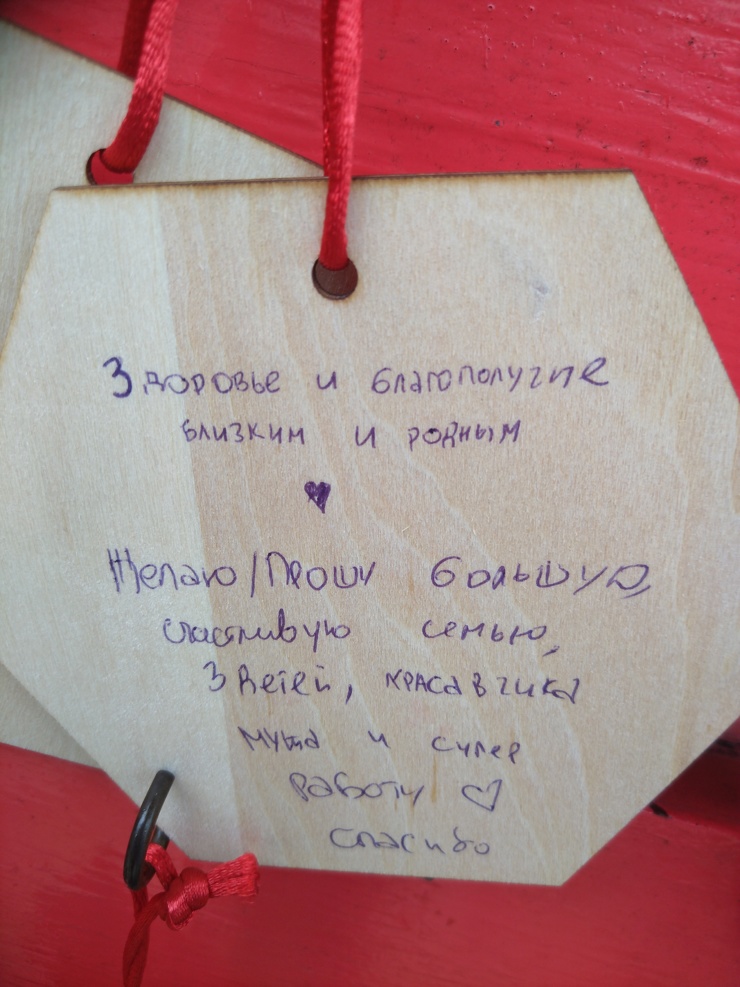 Здоровье и благополучие
близким и родным
Желаю/Прошу большую,
счастливую семью,
3 детей, красавчика
мужа и супер
работу
спасибо